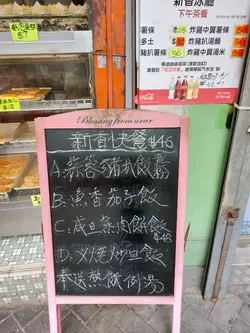 新香冰廳
下午茶餐
薯條 $36 炸雞中翼薯條
多士 炸豬扒湯麵
豬扒薯條 $36 炸雞中翼湯米
Coca-Cola
$7
Blessing from afar
新香快餐 $46
A: 蒜蓉豬扒飯
B: 魚香茄子飯
C: 咸旦蒸肉餅飯 $48
D: 叉燒炒旦飯
奉送熱飲例湯